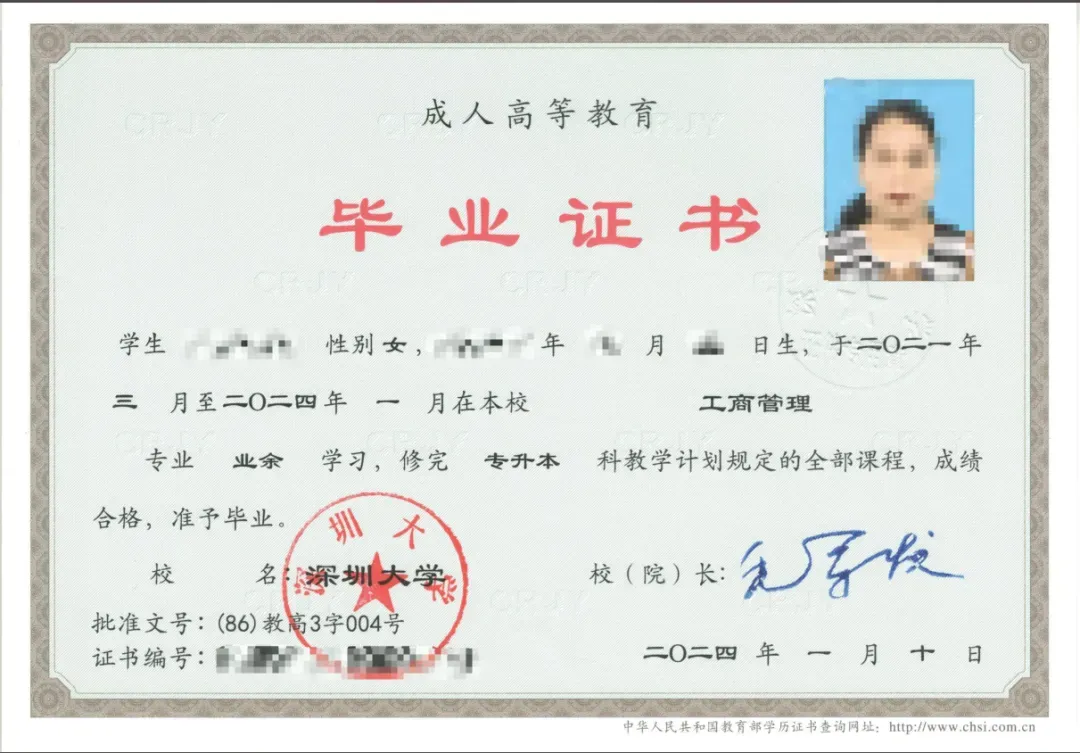 成人高等教育
毕业证书
学生 性别女, 年 月 日生，于二〇二一年
三 月至二〇二四年 一 月在本校 工商管理
专业 业余 学习，修完 专升本 科教学计划规定的全部课程，成绩
合格，准予毕业。
深圳大学
校 名：深圳大学 校（院）长：
批准文号：(86)教高3字004号
证书编号：
二〇二四 年 一 月 十 日
中华人民共和国教育部学历证书查询网址：http://www.chsi.com.cn
CRJY